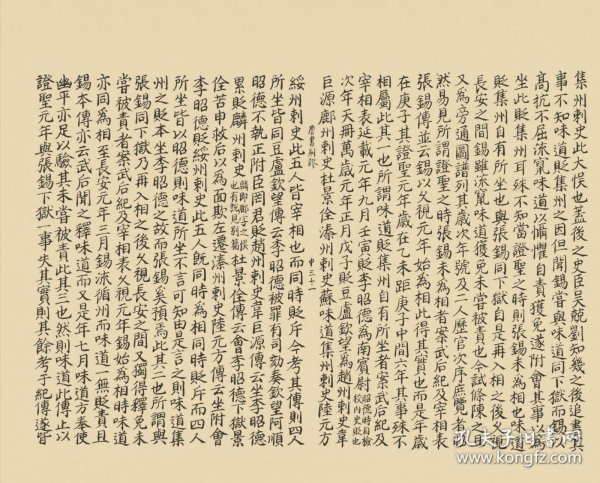 集州刺史此大悮也蓋後之史臣吴兢劉知幾之後追書其
事不知味道貶集州之因但聞錫當與味道同下獄而錫以
髙抗不屈流竄味道以懾懼自責獲免遂附會其事以為
坐此貶集州耳殊不知當證聖之時則張錫未為相也味道
貶集州自有所坐也與張錫同下獄自是再入相之後久視
長安之間錫雖流竄味道獲免未嘗被責也今試條陳之
又為旁通圖譜列其歲次年號及二人歷官次序庶覽者
然易見所謂證聖之時張錫未為相者案武后紀及宰相表
張錫傳並云錫以久視元年始為相此得其實也而是年歳
在庚子其證聖元年歳在乙未距庚子中間六年其事殊不
相屬此其一也所謂味道貶集州自有所坐者案武后紀及
宰相表延載元年九月壬寅貶李昭德為南賓尉昭德時自檢校内史貶也
次年天冊萬歳元年正月戊子貶豆盧欽望為趙州刺史韋
巨源鄜州刺史杜景佺溱州刺史蘇味道集州刺史陸元方
唐書糾謬 中三十一
綏州刺史此五人皆宰相也而同時貶斥今考其傳則四人
所坐皆同豆盧欽望傳云李昭德被罪有司劾奏欽望阿順
昭德不執正附臣罔君貶趙州刺史韋巨源傳云坐李昭德
累貶麟州刺史麟即鄜字之悮也有說見别篇杜景佺傳云會李昭德下獄景
佺苦申救后以為面欺左遷溱州刺史陸元方傳云坐附會
李昭德貶綏州刺史此五人既同時為相同時貶斥而四人
所坐皆以昭德則味道所坐不言可知由是言之則味道集
州之貶本坐李昭德之故而張錫矣預焉此其二也所謂與
張錫同下獄乃再入相之後久視長安之間又獨得釋免未
嘗被責者案武后紀及宰相表久視元年錫始為相時味道
亦同為相至長安元年三月錫流循州而味道一無貶責且
錫本傳亦云武后聞之釋味道而又是年七月味道方奉使
幽平亦足以驗其未嘗被責此其三也然則味道此傳止以
證聖元年與張錫下獄一事失其實則其餘考于紀傳遂皆
孔夫子旧书网
www.kongfz.com